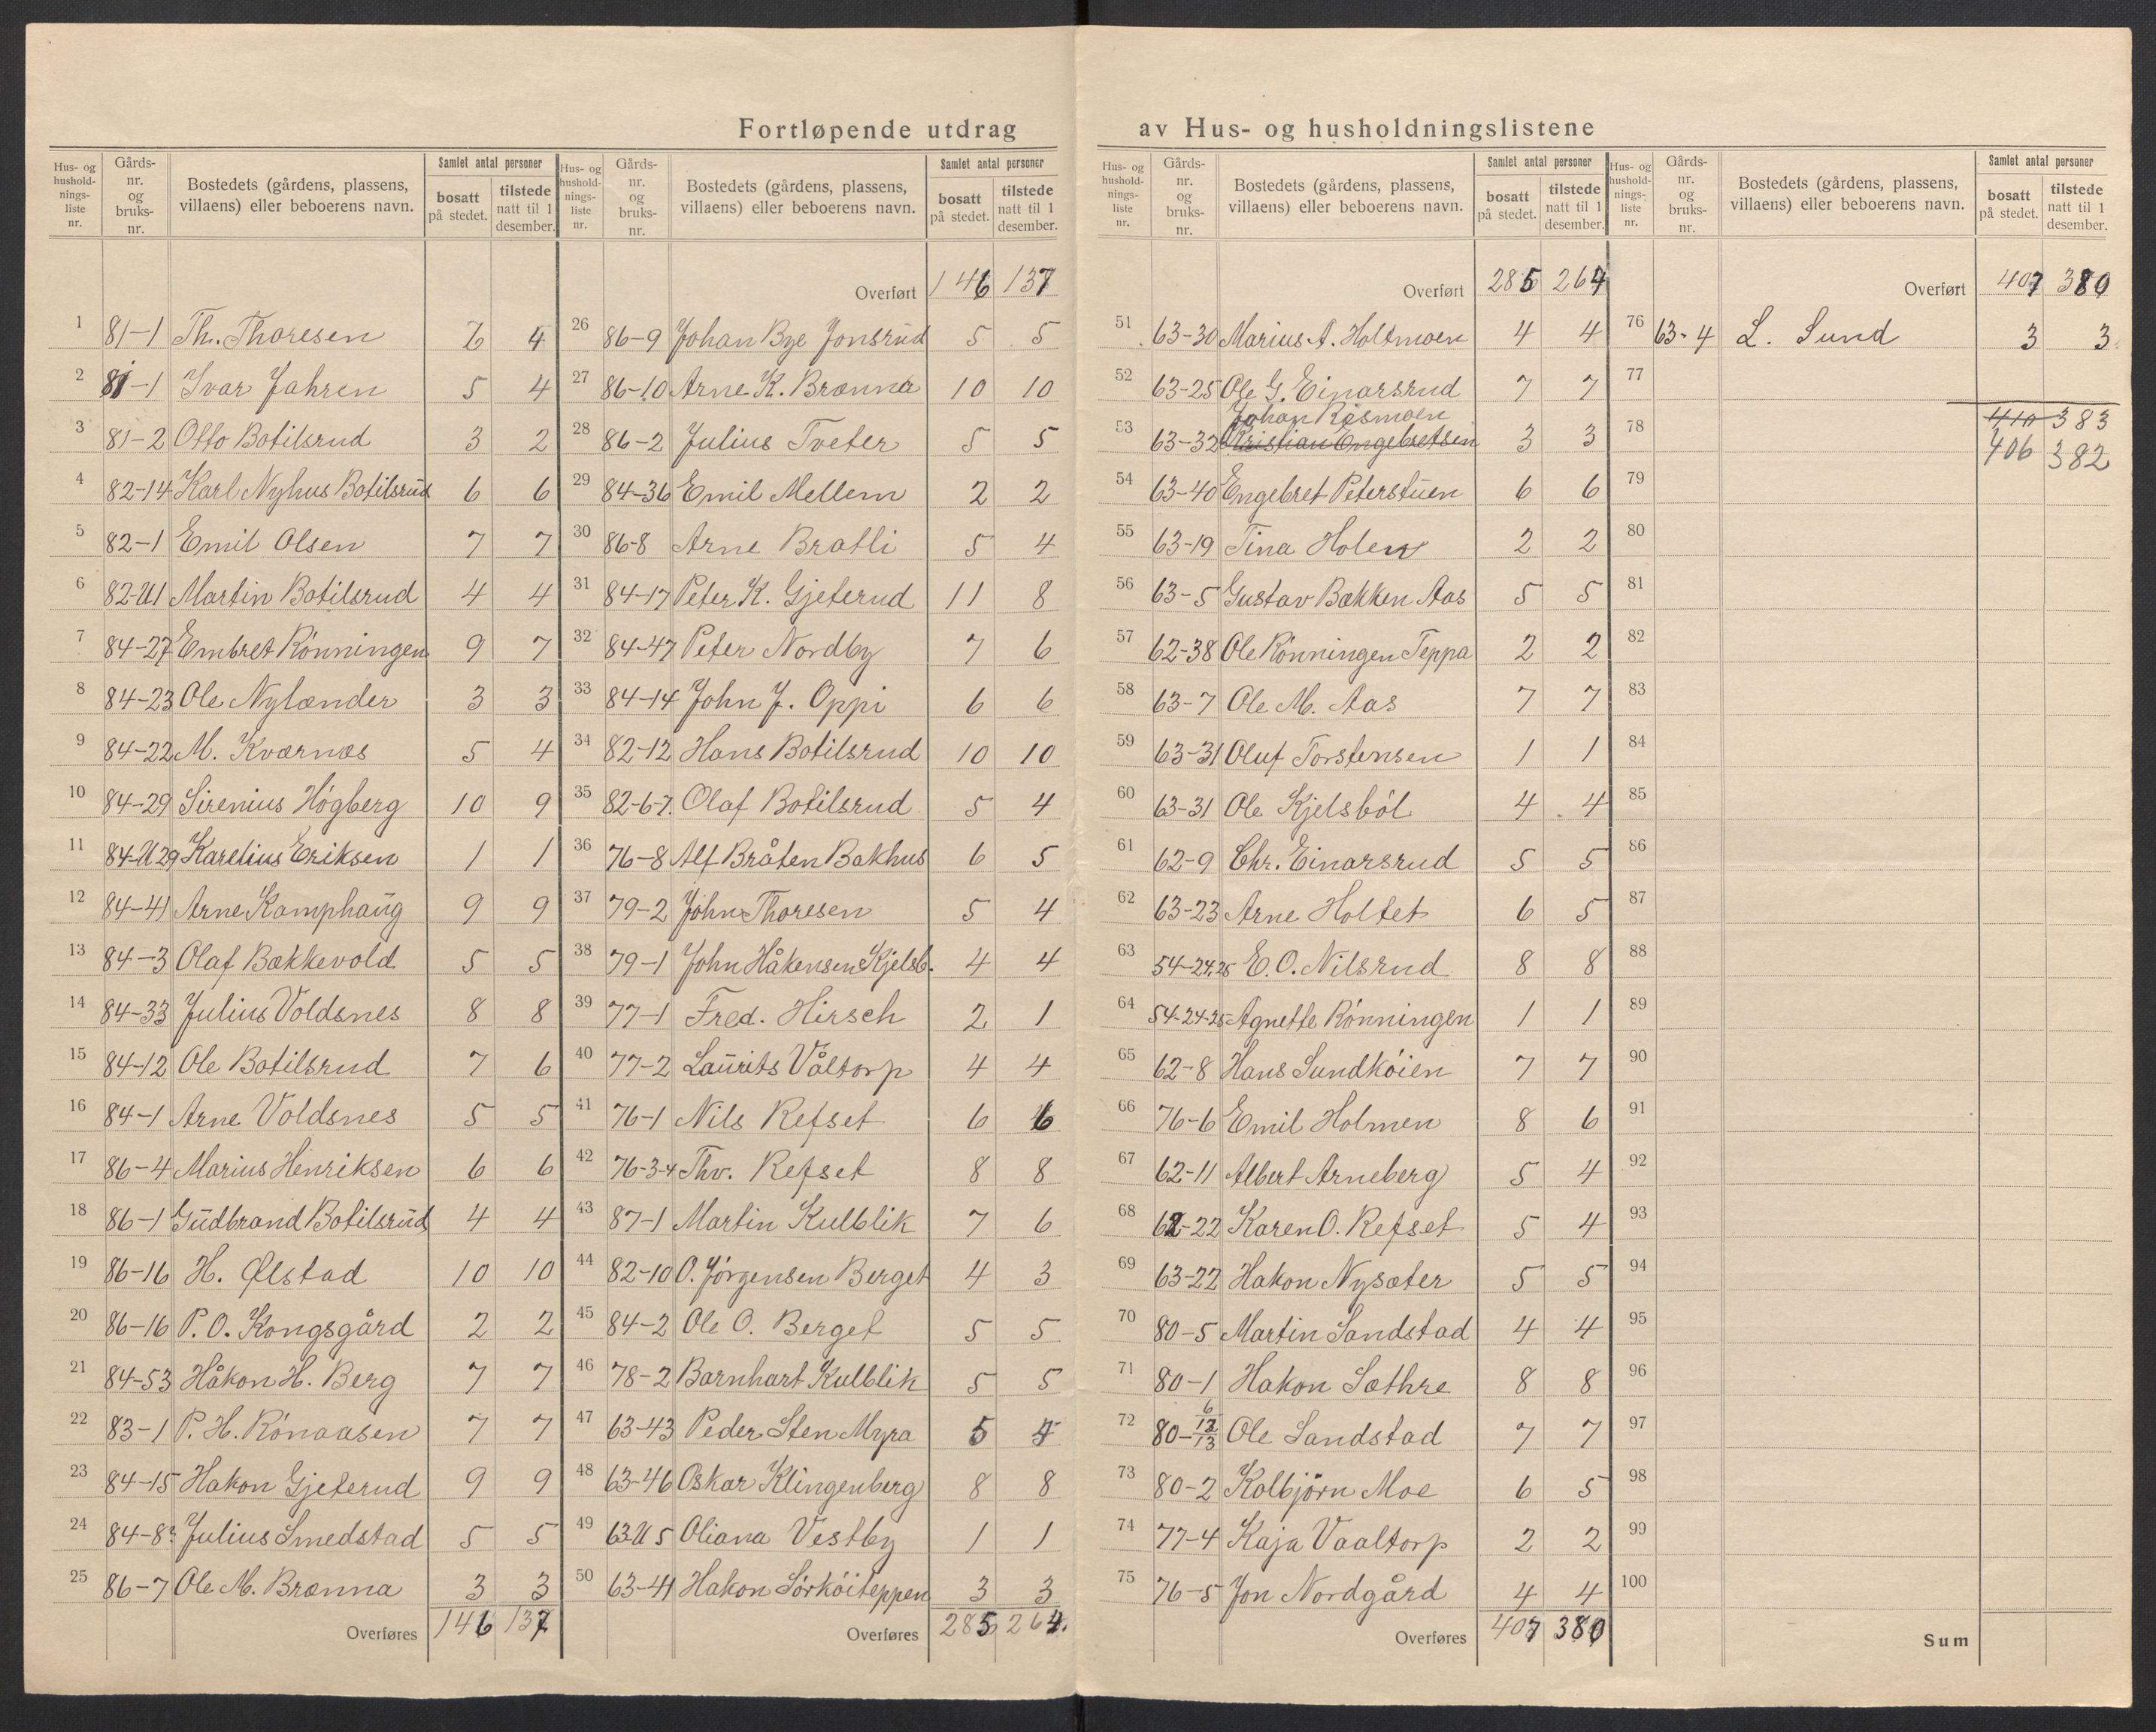 Fortløpende utdrag av Hus- og husholdningslistene
Hus- og husholdningsliste nr. | Gårds- nr. og bruks- nr. | Bostedets (gårdens, plassens, villaens) eller beboerens navn. | Samlet antal personer bosatt på stedet. | tilstede natt til 1 desember.
1 81-1 Th. Thoresen 7 4
2 81-1 Ivar Jahren 5 4
3 81-2 Otto Botilsrud 3 2
4 82-14 Karl Nyhus Botilsrud 6 6
5 82-1 Emil Olsen 7 7
6 82-U1 Martin Botilsrud 4 4
7 84-27 Embret Rönningen 9 7
8 84-23 Ole Nylænder 3 3
9 84-22 M. Kværnæs 5 4
10 84-29 Sirenius Högberg 10 9
11 84-U29 Karelius Eriksen 1 1
12 84-41 Arne Kamphaug 9 9
13 84-3 Olaf Bækkevold 5 5
14 84-33 Julius Voldsnes 8 8
15 84-12 Ole Botilsrud 7 6
16 84-1 Arne Voldsnes 5 5
17 86-4 Marius Henriksen 6 6
18 86-1 Gudbrand Botilsrud 4 4
19 86-16 H. Ølstad 10 10
20 86-16 P. O. Kongsgård 2 2
21 84-53 Håkon H. Berg 7 7
22 83-1 P. H. Rönaasen 7 7
23 84-15 Hakon Gjeterud 9 9
24 84-8 Julius Smedstad 5 5
25 86-7 Ole M. Brænna 3 3
Overføres 146 137
Hus- og husholdningsliste nr. | Gårds- nr. og bruks- nr. | Bostedets (gårdens, plassens, villaens) eller beboerens navn. | Samlet antal personer bosatt på stedet. | tilstede natt til 1 desember.
Overført 146 137
26 86-9 Johan Bye Jonsrud 5 5
27 86-10 Arne K. Brænna 10 10
28 86-2 Julius Tveter 5 5
29 84-36 Emil Mellem 2 2
30 86-8 Arne Bratli 5 4
31 84-17 Peter K. Gjeterud 11 8
32 84-47 Peter Nordby 7 6
33 84-14 John J. Oppi 6 6
34 82-12 Hans Botilsrud 10 10
35 82-6-7. Olaf Botilsrud 5 4
36 76-8 Alf Bråten Bakhus 6 5
37 79-2 John Thoresen 5 4
38 79-1 John Håkensen Kjelsb. 4 4
39 77-1 Fred. Hirsch 2 1
40 77-2 Laurits Våltorp 4 4
41 76-1 Nils Refset 6 6
42 76-3-4 Thv. Refset 8 8
43 87-1 Martin Kulblik 7 6
44 82-10 O. Jörgensen Berget 4 3
45 84-2 Ole O. Berget 5 5
46 78-2 Barnhart Kulblik 5 5
47 63-43 Peder Sten Myra 5
48 63-46 Oskar Klingenberg 8 8
49 63U5 Oliana Vestby 1 1
50 63-41 Hakon Sörköiteppen 3 3
Overføres 285 264.
Hus- og husholdningsliste nr. | Gårds- nr. og bruks- nr. | Bostedets (gårdens, plassens, villaens) eller beboerens navn. | Samlet antal personer bosatt på stedet. | tilstede natt til 1 desember.
Overført 285 264
51 63-30 Marius A. Holtmoen 4 4
52 63-25 Ole G. Einarsrud 7 7
Johan Rosmoen
53 63-32 Kristian Engebretsen 3 3
54 63-40 Engebret Peterstuen 6 6
55 63-19 Tina Holen 2 2
56 63-5 Gustav Bækken Aas 5 5
57 62-38 Ole Rönningen Teppa 2 2
58 63-7 Ole M. Aas 7 7
59 63-31 Oluf Torstensen 1 1
60 63-31 Ole Kjelsböl 4 4
61 62-9 Chr. Einarsrud 5 5
62 63-23 Arne Holtet 6 5
63 54-24.25 E. O. Nilsrud 8 8
64 54-24-25 Agnette Rönningen 1 1
65 62-8 Hans Sundköien 7 7
66 76-6 Emil Holmen 8 6
67 62-11 Albert Arneberg 5 4
68 62-22 Karen O. Refset 5 4
69 63-22 Hakon Nysæter 5 5
70 80-5 Martin Sandstad 4 4
71 80-1 Hakon Sæthre 8 8
72 80-6 12 13 Ole Sandstad 7 7
73 80-2 Kolbjörn Moe 6 5
74 77-4 Kaja Vaaltorp 2 2
75 76-5 Jon Nordgård 4 4
Overføres 407 380
Hus- og husholdningsliste nr. | Gårds- nr. og bruks- nr. | Bostedets (gårdens, plassens, villaens) eller beboerens navn. | Samlet antal personer bosatt på stedet. | tilstede natt til 1 desember.
Overført 407 380
76 63-4 L. Sund 3 3
77
410 383
78 406 382
79
80
81
82
83
84
85
86
87
88
89
90
91
92
93
94
95
96
97
98
99
100
Sum